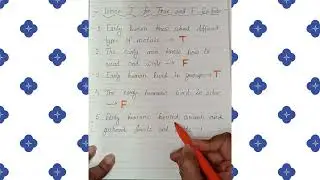 Write T for True and F for False
1. Early human used different
type of metals → T
2. The early men knew how to
read and write → F
3. Early human lived in groups → T
4. The early humans used to
→ F
5. Early humans hunted animals and
gathered fruits and